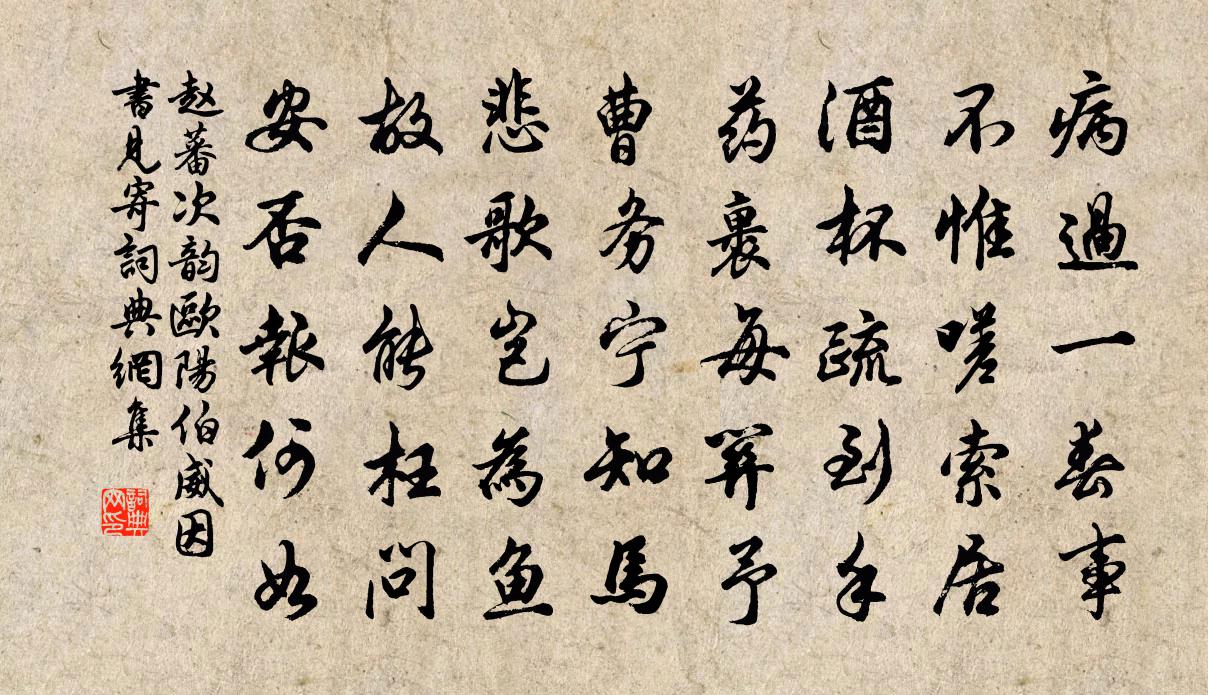 病過一春事
不惟嗟索居
酒杯疏到手
药裹每關予
曹务宁知馬
悲歌岂為鱼
故人能枉問
安否報何如
赵蕃次韵歐陽伯威因
書見寄詞典網集
詞典网印